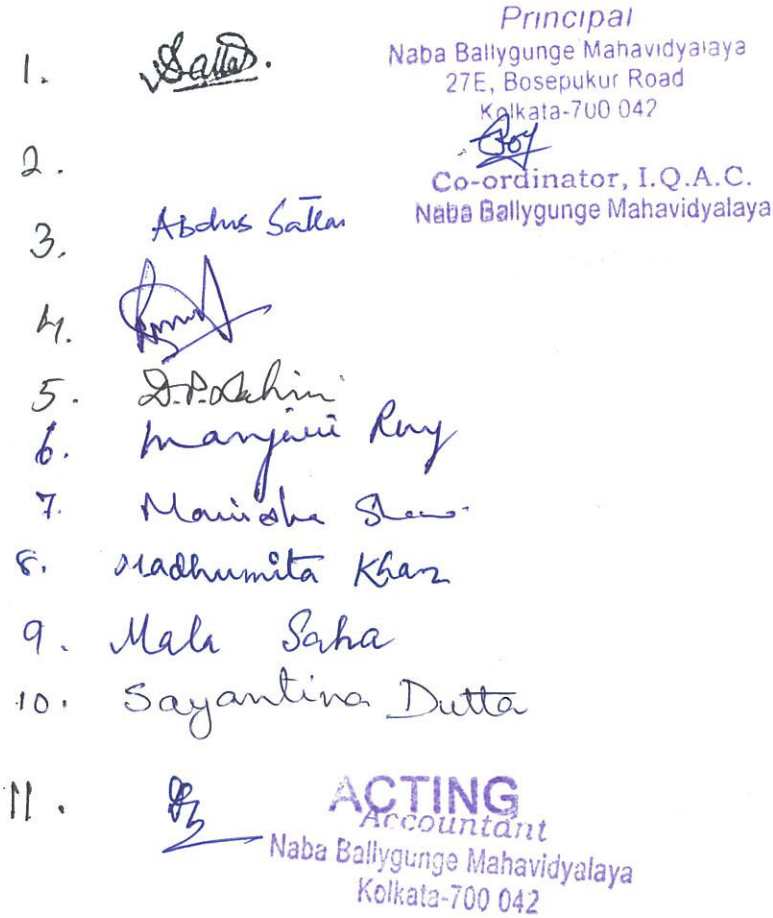 Principal
Naba Ballygunge Mahavidyalaya
27E, Bosepukur Road
Kolkata-700 042
1.
2. Roy
Co-ordinator, I.Q.A.C.
Naba Ballygunge Mahavidyalaya
3. Abdus Sattar
4.
5. D.P.
6. Manjari Roy
7. Manisha Shaw
8. Madhumita Khan
9. Mala Saha
10. Sayantina Dutta
11.
ACTING
Accountant
Naba Ballygunge Mahavidyalaya
Kolkata-700 042